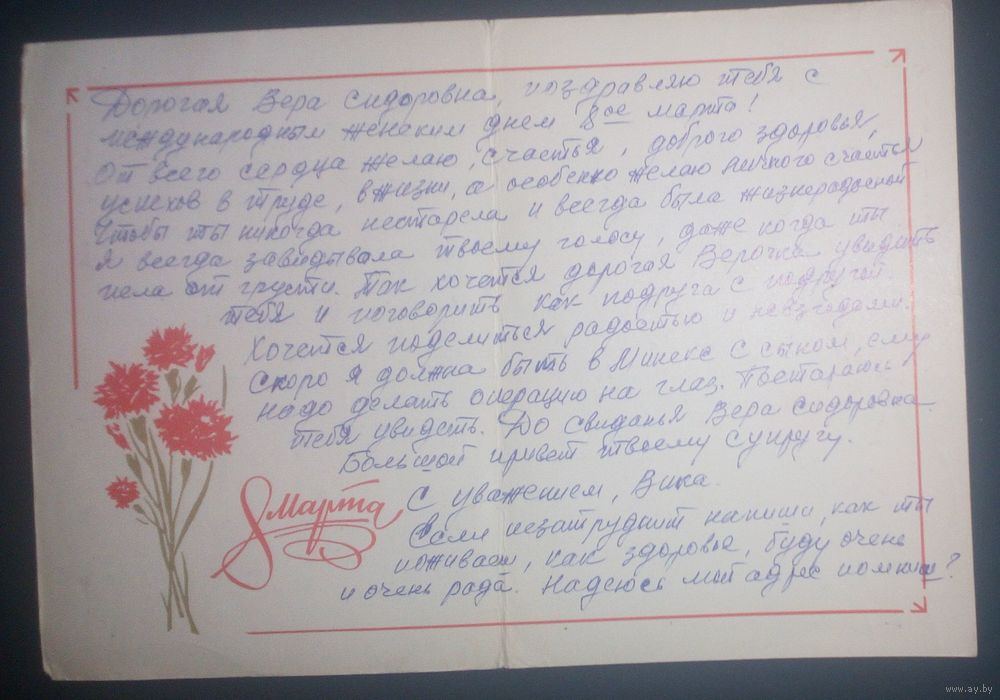 Дорогая Вера Сидоровна, поздравляю тебя с
международным женским днем 8ое марта!
От всего сердца желаю, счастья, доброго здоровья,
успехов в труде, в жизни, а особенно желаю личного счастья
Чтобы ты никогда нестарела и всегда была жизнерадосной
Я всегда завидывала твоему голосу, даже когда ты
пела от грусти. Так хочется дорогая Верочка увидить
тебя и поговорить как подруга с подругой.
Хочется поделиться радостью и невзгодами.
Скоро я должна быть в Минске с сыном, ему
надо делать операцию на глаз. Постараюсь
тебя увидеть. До свиданья Вера Сидоровна.
Большой привет твоему супругу.
С уважением, Вика.
Если незатруднит напиши, как ты
поживаеш, как здоровье, буду очень
и очень рада. Надеюсь мой адрес помниш?
8 Марта
www.ay.by